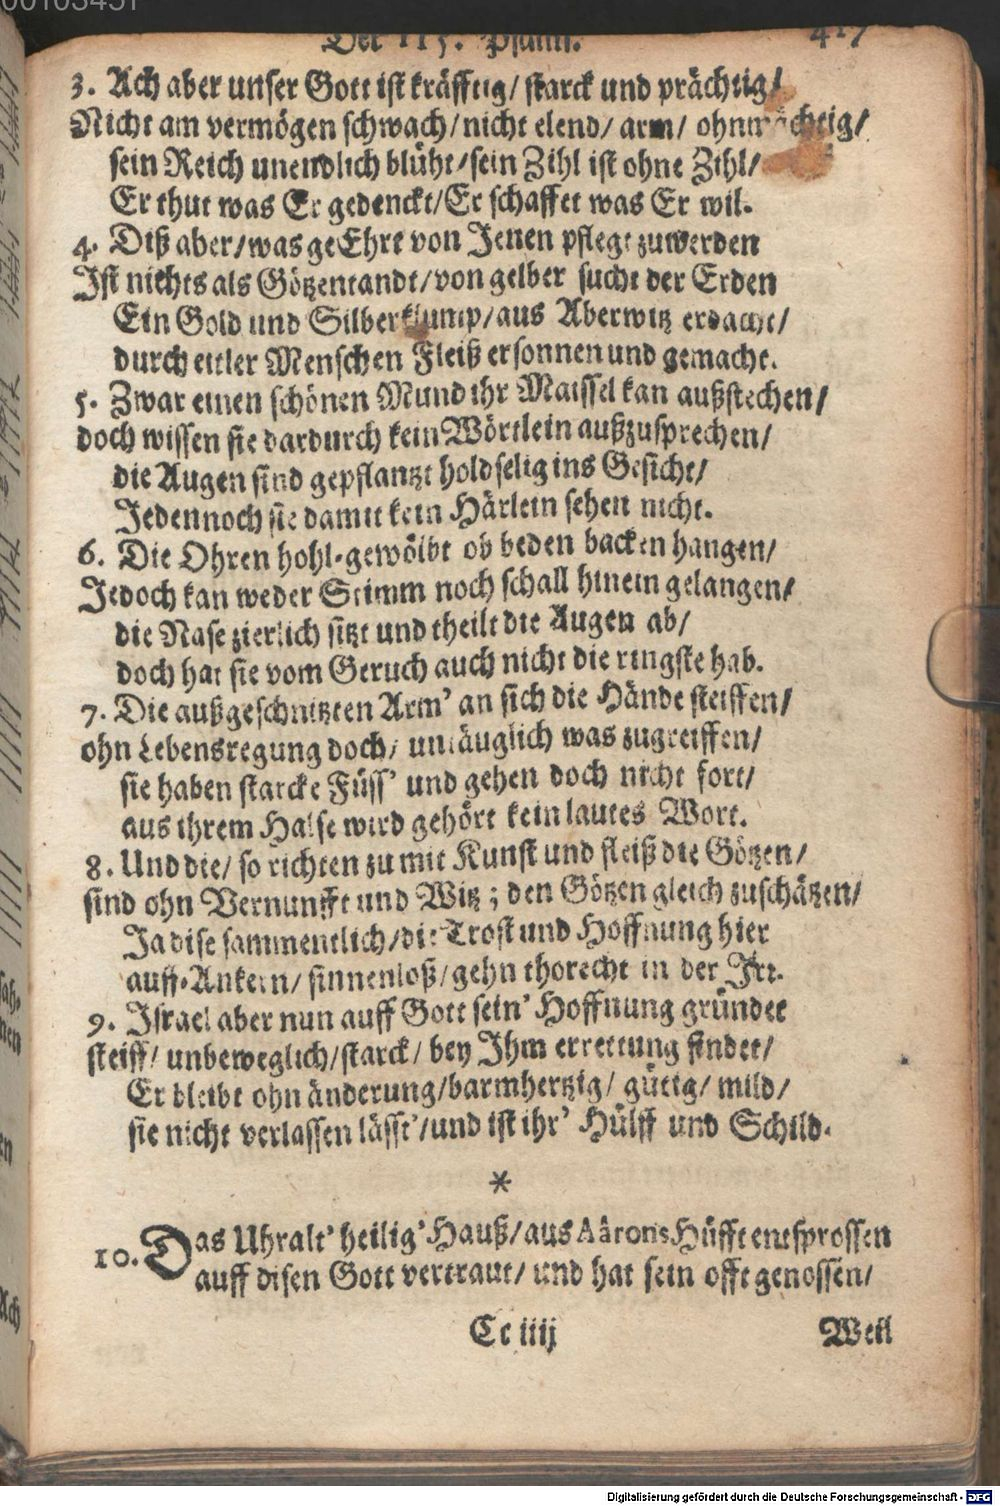 00103451
Der 115. Psalm. 417
3. Ach aber unser Gott ist kräfftig/ starck und prächtig/
Nicht am vermögen schwach/ nicht elend/ arm/ ohnmächtig/
sein Reich unendlich blüht/ sein Zihl ist ohne Zihl/
Er thut was Er gedenckt/ Er schaffet was Er wil.
4. Diß aber/ was geEhrt von Jenen pflegt zuwerden
Ist nichts als Götzentandt/ von gelber sucht der Erden
Ein Gold und Silberklump/ aus Aberwitz erdacht/
durch eitler Menschen Fleiß ersonnen und gemacht.
5. Zwar einen schönen Mund ihr Maissel kan außstechen/
doch wissen sie dardurch kein Wörtlein außzusprechen/
die Augen sind gepflantzt holdselig ins Gesicht/
Jedennoch sie damit kein Härlein sehen nicht.
6. Die Ohren hohl-gewölbt ob beden backen hangen/
Jedoch kan weder Stimm noch schall hinein gelangen/
die Nase zierlich sitzt und theilt die Augen ab/
doch hat sie vom Geruch auch nicht die ringste hab.
7. Die außgeschnitzten Arm' an sich die Hände steiffen/
ohn Lebensregung doch/ untäuglich was zugreiffen/
sie haben starcke Füss' und gehen doch nicht fort/
aus ihrem Halse wird gehört kein lautes Wort.
8. Und die/ so richten zu mit Kunst und fleiß die Götzen/
sind ohn Vernunfft und Witz; den Götzen gleich zuschätzen/
Ja dise sammentlich/ die Trost und Hoffnung hier
auff-Ankern/ sinnenloß/ gehn thorecht in der Irr.
9. Israel aber nun auff Gott sein' Hoffnung gründet
steiff/ unbeweglich/ starck/ bey Ihm errettung findet/
Er bleibt ohn änderung/ barmhertzig/ gütig/ mild/
sie nicht verlassen lässt'/ und ist ihr' Hülff und Schild.
*
10. Das Uhralt' heilig' Hauß/ aus Aärons Hüfft entsprossen
auff disen Gott vertraut/ und hat sein offt genossen/
Cc iiij Weil
Digitalisierung gefördert durch die Deutsche Forschungsgemeinschaft - DFG